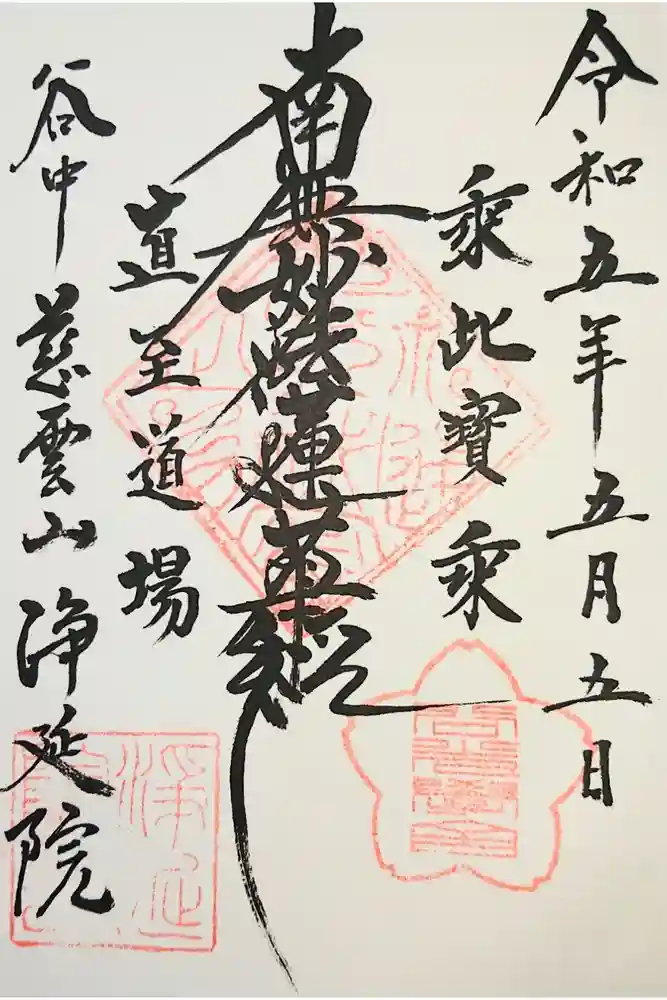 令和五年五月五日
乗此寶乗
南無妙法蓮華経
直至道場
谷中 慈雲山 浄延院